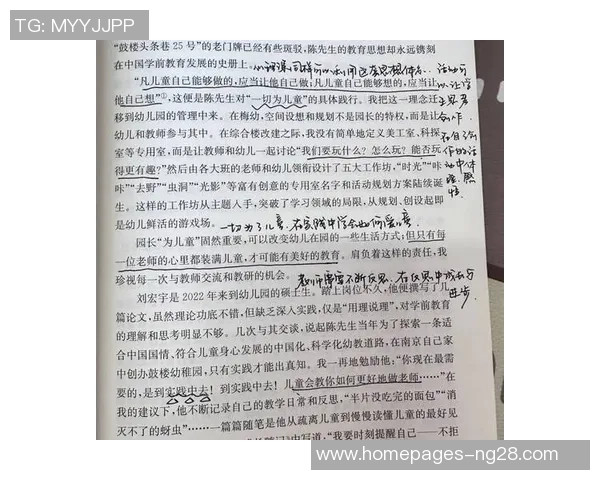 TG: MYYJJPP
“鼓楼头条巷25号”的老门牌已经有些斑驳，陈先生的教育思想却永远镌刻
在中国学前教育发展的史册上。
“凡儿童自己能够做的，应当让他自己做；凡儿童自己能够想的，应当让
他自己想”①，这便是陈先生对“一切为儿童”的具体践行。我把这一理念迁
移到幼儿园的管理中来。在梅幼，空间设想和规划不是园长的特权，而是让
幼儿和教师参与其中。在综合楼改建之际，我没有简单地定义美工室、科探
室等专用室，而是让教师和幼儿一起讨论“我们要玩什么？怎么玩？能否玩
得更有趣？”然后由各大班的老师和幼儿领衔设计了五大工作坊，“时光”“咔
咔”“去野”“虫洞”“光影”等富有创意的专用室名字和活动规划方案陆续诞
生。这样的工作坊从主题入手，突破了学习领域的局限，从规划、创设起即
是幼儿鲜活的游戏场。
一切为了儿童，在实践中学会如何爱儿童
园长“为儿童”固然重要，可以改变幼儿在园的一些生活方式；但只有每
一位老师的心里都装满儿童，才可能有美好的教育。肩负着这样的责任，我
珍视每一次与教师交流和教研的机会。
教师需要不断反思，在反思中成长与
进步。
刘宏宇是2022年来到幼儿园的硕士生。踏上岗位不久，他便撰写了几
篇论文，虽然理论功底不错，但缺乏深入实践，仅是“用理说理”，对学前教育
的理解和思考明显不够。几次与其交谈，说起陈先生当年为了探索一条适
合中国国情、符合儿童身心发展的中国化、科学化幼教道路，在南京自己家
中创办鼓楼幼稚园，只有实践才能出真知。我一再地勉励他：“你现在最需
要的，是到实践中去！到实践中去！儿童会教你如何更好地做老师……”在
我的建议下，他不断记录自己的教学日常和反思，“半片没吃完的面包”“消
灭不了的蚜虫”……一篇篇随笔是他从疏离儿童到慢慢读懂儿童的最好见
中写道，“我要时刻提醒自己——不拒
www.homepages-ng28.com